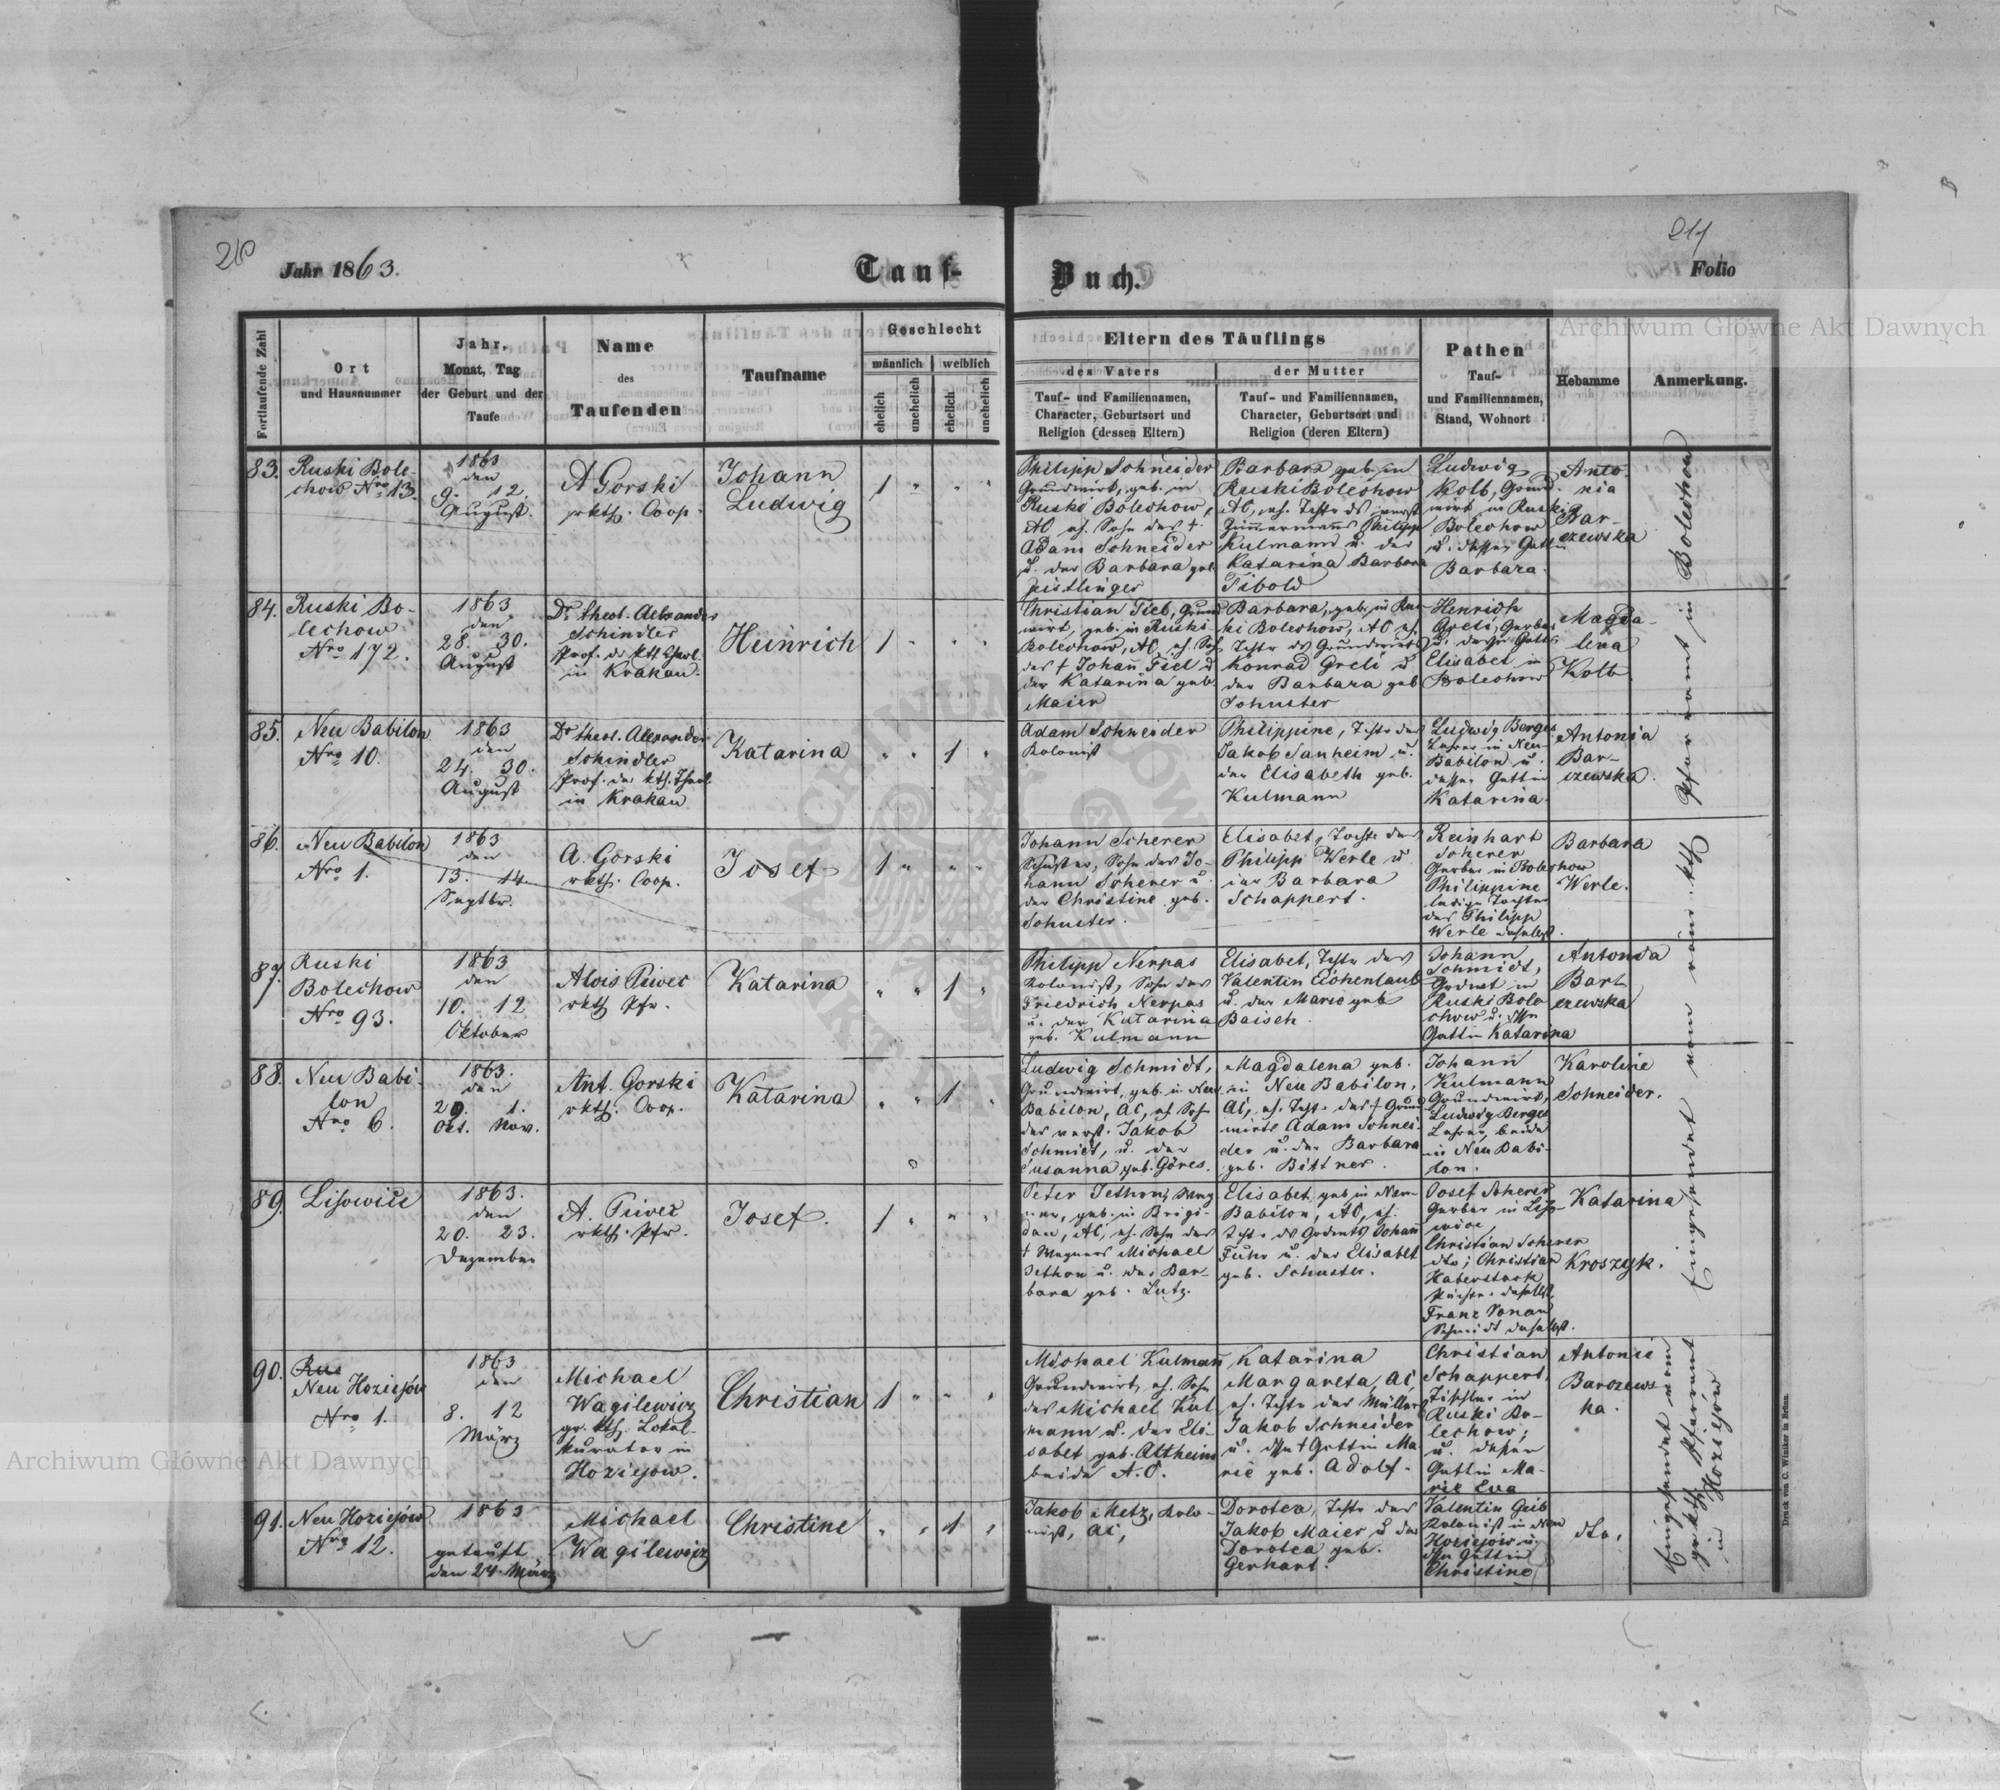 210
Jahr 1863.
Tauf-
Buch.
211
Folio
Archiwum Główne Akt Dawnych
Fortlaufende Zahl
Ort
und Hausnummer
Jahr,
Monat, Tag
der Geburt und der
Taufe
Name
des
Taufenden
Taufname
Geschlecht
männlich
weiblich
ehelich
unehelich
ehelich
unehelich
Eltern des Täuflings
des Vaters
Tauf- und Familiennamen,
Character, Geburtsort und
Religion (dessen Eltern)
der Mutter
Tauf- und Familiennamen,
Character, Geburtsort und
Religion (deren Eltern)
Pathen
Tauf-
und Familiennamen,
Stand, Wohnort
Hebamme
Anmerkung.
83.
Ruski Bole-
chow Nro 13.
1863
den
9. 12.
August.
A Gorski
rkth. Coop.
Johann
Ludwig
1 " " "
Philipp Schneider
Grundwirt, geb. in
Ruski Bolechow,
AC eh. Sohn des †
Adam Schneider
u. der Barbara geb.
Barbara geb. in
Ruski Bolechow
AC, eh. Tochter des verst
Zimmermanns Philipp
Kulmann u. der
Katarina Barbara
Tibold
Ludwig
Kolb, Grund-
wirt in Ruski
Bolechow
u. dessen Gattin
Barbara.
Anto-
nia
Bar-
czewska
84.
Ruski Bo-
lechow
Nro 172.
1863
den
28. 30.
August
Dr theol. Alexander
Schindler
Prof. der kth Theol.
in Krakau.
Heinrich
1 " " "
Christian Fiel, Grund
wirt, geb. in Ruski
Bolechow, AC, eh. Sohn
des † Johann Fiel u
der Katarina geb.
Maier
Barbara, geb. in Rus-
ki Bolechow, AC eh.
Tochter des Grundwirts
Konrad Greti u
der Barbara geb
Schuster
Henrich
Greti, Gerber
u. dessen Gattin
Elisabet in
Bolechow
Magda-
lena
Kolb
85.
Neu Babilon
Nro 10.
1863
den
24. 30.
August
Dr theol. Alexander
Schindler
Prof. der kth. Theol.
in Krakau
Katarina
" " 1 "
Adam Schneider
Kolonist
Philippine, Tochter des
Jakob Sanheim, u.
der Elisabeth geb.
Kulmann
Ludwig Berges
Lehrer in Neu
Babilon u.
dessen Gattin
Katarina.
Antonia
Bar-
czewska.
86.
Neu Babilon
Nro 1.
1863
den
13. 14.
Septbr.
A. Gorski
rkth. Coop.
Josef
1 " " "
Johann Scherer
Schuster, Sohn des Jo-
hann Scherer u.
der Christine geb.
Schuster.
Elisabet, Tochter des
Philipp Werle u
der Barbara
Schappert.
Reinhart
Scherer
Gerber in Bolechow
Philippine
ledige Tochter
des Philipp
Werle daselbst.
Barbara
Werle.
87.
Ruski
Bolechow
Nro 93.
1863
den
10. 12
Oktober
Alois Piwec
rkth Pfr.
Katarina
" " 1 "
Philipp Nerpas
Kolonist, Sohn des
Friedrich Nerpas
u. der Katarina
geb. Kulmann
Elisabet, Tochter des
Valentin Eichenlaub
u. der Marie geb
Baisch.
Johann
Schmidt,
Grdwrt in
Ruski Bole
chow u. dssn
Gattin Katarina
Antonia
Bart
czewska
88.
Neu Babi-
lon
Nro 6.
1863.
den
29. 1.
Okt. Nov.
Ant. Gorski
rkth. Coop.
Katarina
" " 1 "
Ludwig Schmidt,
Grundwirt, geb. in Neu
Babilon, AC, eh Sohn
des verst. Jakob
Schmidt, u. der
Susanna geb. Göres.
Magdalena geb.
in Neu Babilon,
AC, eh. Tochter des † Grund
wirts Adam Schnei-
der u. der Barbara
geb. Bittner.
Johann
Kulmann
Grundwirt,
Ludwig Berges
Lehrer, beide
in Neu Babi-
lon.
Karoline
Schneider.
89.
Lisowice
1863.
den
20. 23.
Dezember
A. Piwec
rkth. Pfr.
Josef.
1 " " "
Peter Jethon, Wag
ner, geb. in Brigi-
dau, AC, eh. Sohn des
† Wagners Michael
Jethon u. der Bar-
bara geb. Lutz.
Elisabet geb in Neu-
Babilon, AC, eh.
Tochter des Grdwrts Johann
Fuhr u. der Elisabet
geb. Schuster.
Josef Scherer
Gerber in Liso-
wice,
Christian Scherer
dto; Christian
Haberstock
daselbst,
Schmidt daselbst.
Katarina
Kroszyk.
90.
Rus
Neu Hoziejów
Nro 1.
1863
den
8. 12
März
Michael
Wagilewicz
gr. kth. Lokal-
kurator in
Hoziejow.
Christian
1 " " "
Michael Kulmann
Grundwirt, eh. Sohn
des Michael Kul
mann u. der Eli-
sabet geb. Altheim
beide A.C.
Katarina
Margareta, AC,
eh. Tochter des Müller
Jakob Schneider
u. dssn † Gattin Ma-
rie geb. Adolf.
Christian
Schappert,
Tischler in
Ruski Bo-
lechow;
u. dessen
Gattin Ma-
rie Eva
Antonie
Barczews
ka.
91.
Neu Hoziejów
Nro 12.
1863
getauft
den 24. März
Michael
Wagilewicz
Christine
" " 1 "
Jakob Metz, Kolo-
nist, AC,
Dorotea, Tochter des
Jakob Maier u der
Dorotea geb.
Gerhart.
Valentin Geib
Kolonist in Neu
Hoziejow u.
dssn Gattin
Christine
dto.
Eingesendet vom röm. kth Pfarramt in Bolechow
Eingesendet vom
gr. kth Pfarramt
in Hoziejów
Druck von C. Winiker in Brünn.
Archiwum Główne Akt Dawnych